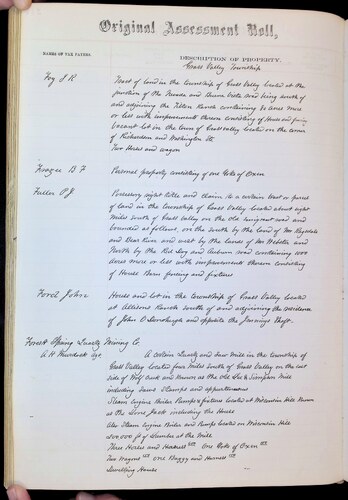 Original Assessment Roll,
NAMES OF TAX PAYERS
DESCRIPTION OF PROPERTY.
Grass Valley Township
Fry J R
Tract of land in the township of Grass Valley located at the
junction of the Nevada and Buena Vista and being south of
and adjoining the Tilton Ranch containing 80 acres more
or less with improvements thereon consisting of House and fencing
Vacant lot in the town of Grass valley located on the corner
of Richardson and Washington Sts
Two Horses and wagon
B F
Personal property consisting of one Yoke of Oxen
Fuller P J
Possessory right title and claim to a certain tract or parcel
of land in the township of Grass Valley located about eight
Miles south of Grass valley on the old emigrant road and
bounded as follows, on the south by the land of Mr Ragsdale
and Bear River and west by the lands of Mr Webster and
North by the Red Dog and Auburn road containing 400
acres more or less with improvements thereon consisting
of House Barn fencing and fixtures
Ford John
House and lot in the township of Grass Valley located
at Allisons Ranch south of and adjoining the residence
of John O Donohugh and opposite the Jennings Shaft.
Forest Spring Quartz Mining Co
A H Murdock Agt
A certain Quartz and Saw Mill in the township of
Grass Valley located four Miles south of Grass Valley on the east
side of Wolf creek and known as the old Sampson Mill
including Stamps and appurtenances
Steam Engine Boiler Pumps & fixtures located at Wisconsin Hill known
as the Lone Jack including the House
Also Steam Engine Boiler and Pumps located on Wisconsin Hill
200,000 ft of Lumber at the Mill
Three Horses and Harness One Yoke of Oxen
Two Wagons one Buggy and Harness
Dwelling House